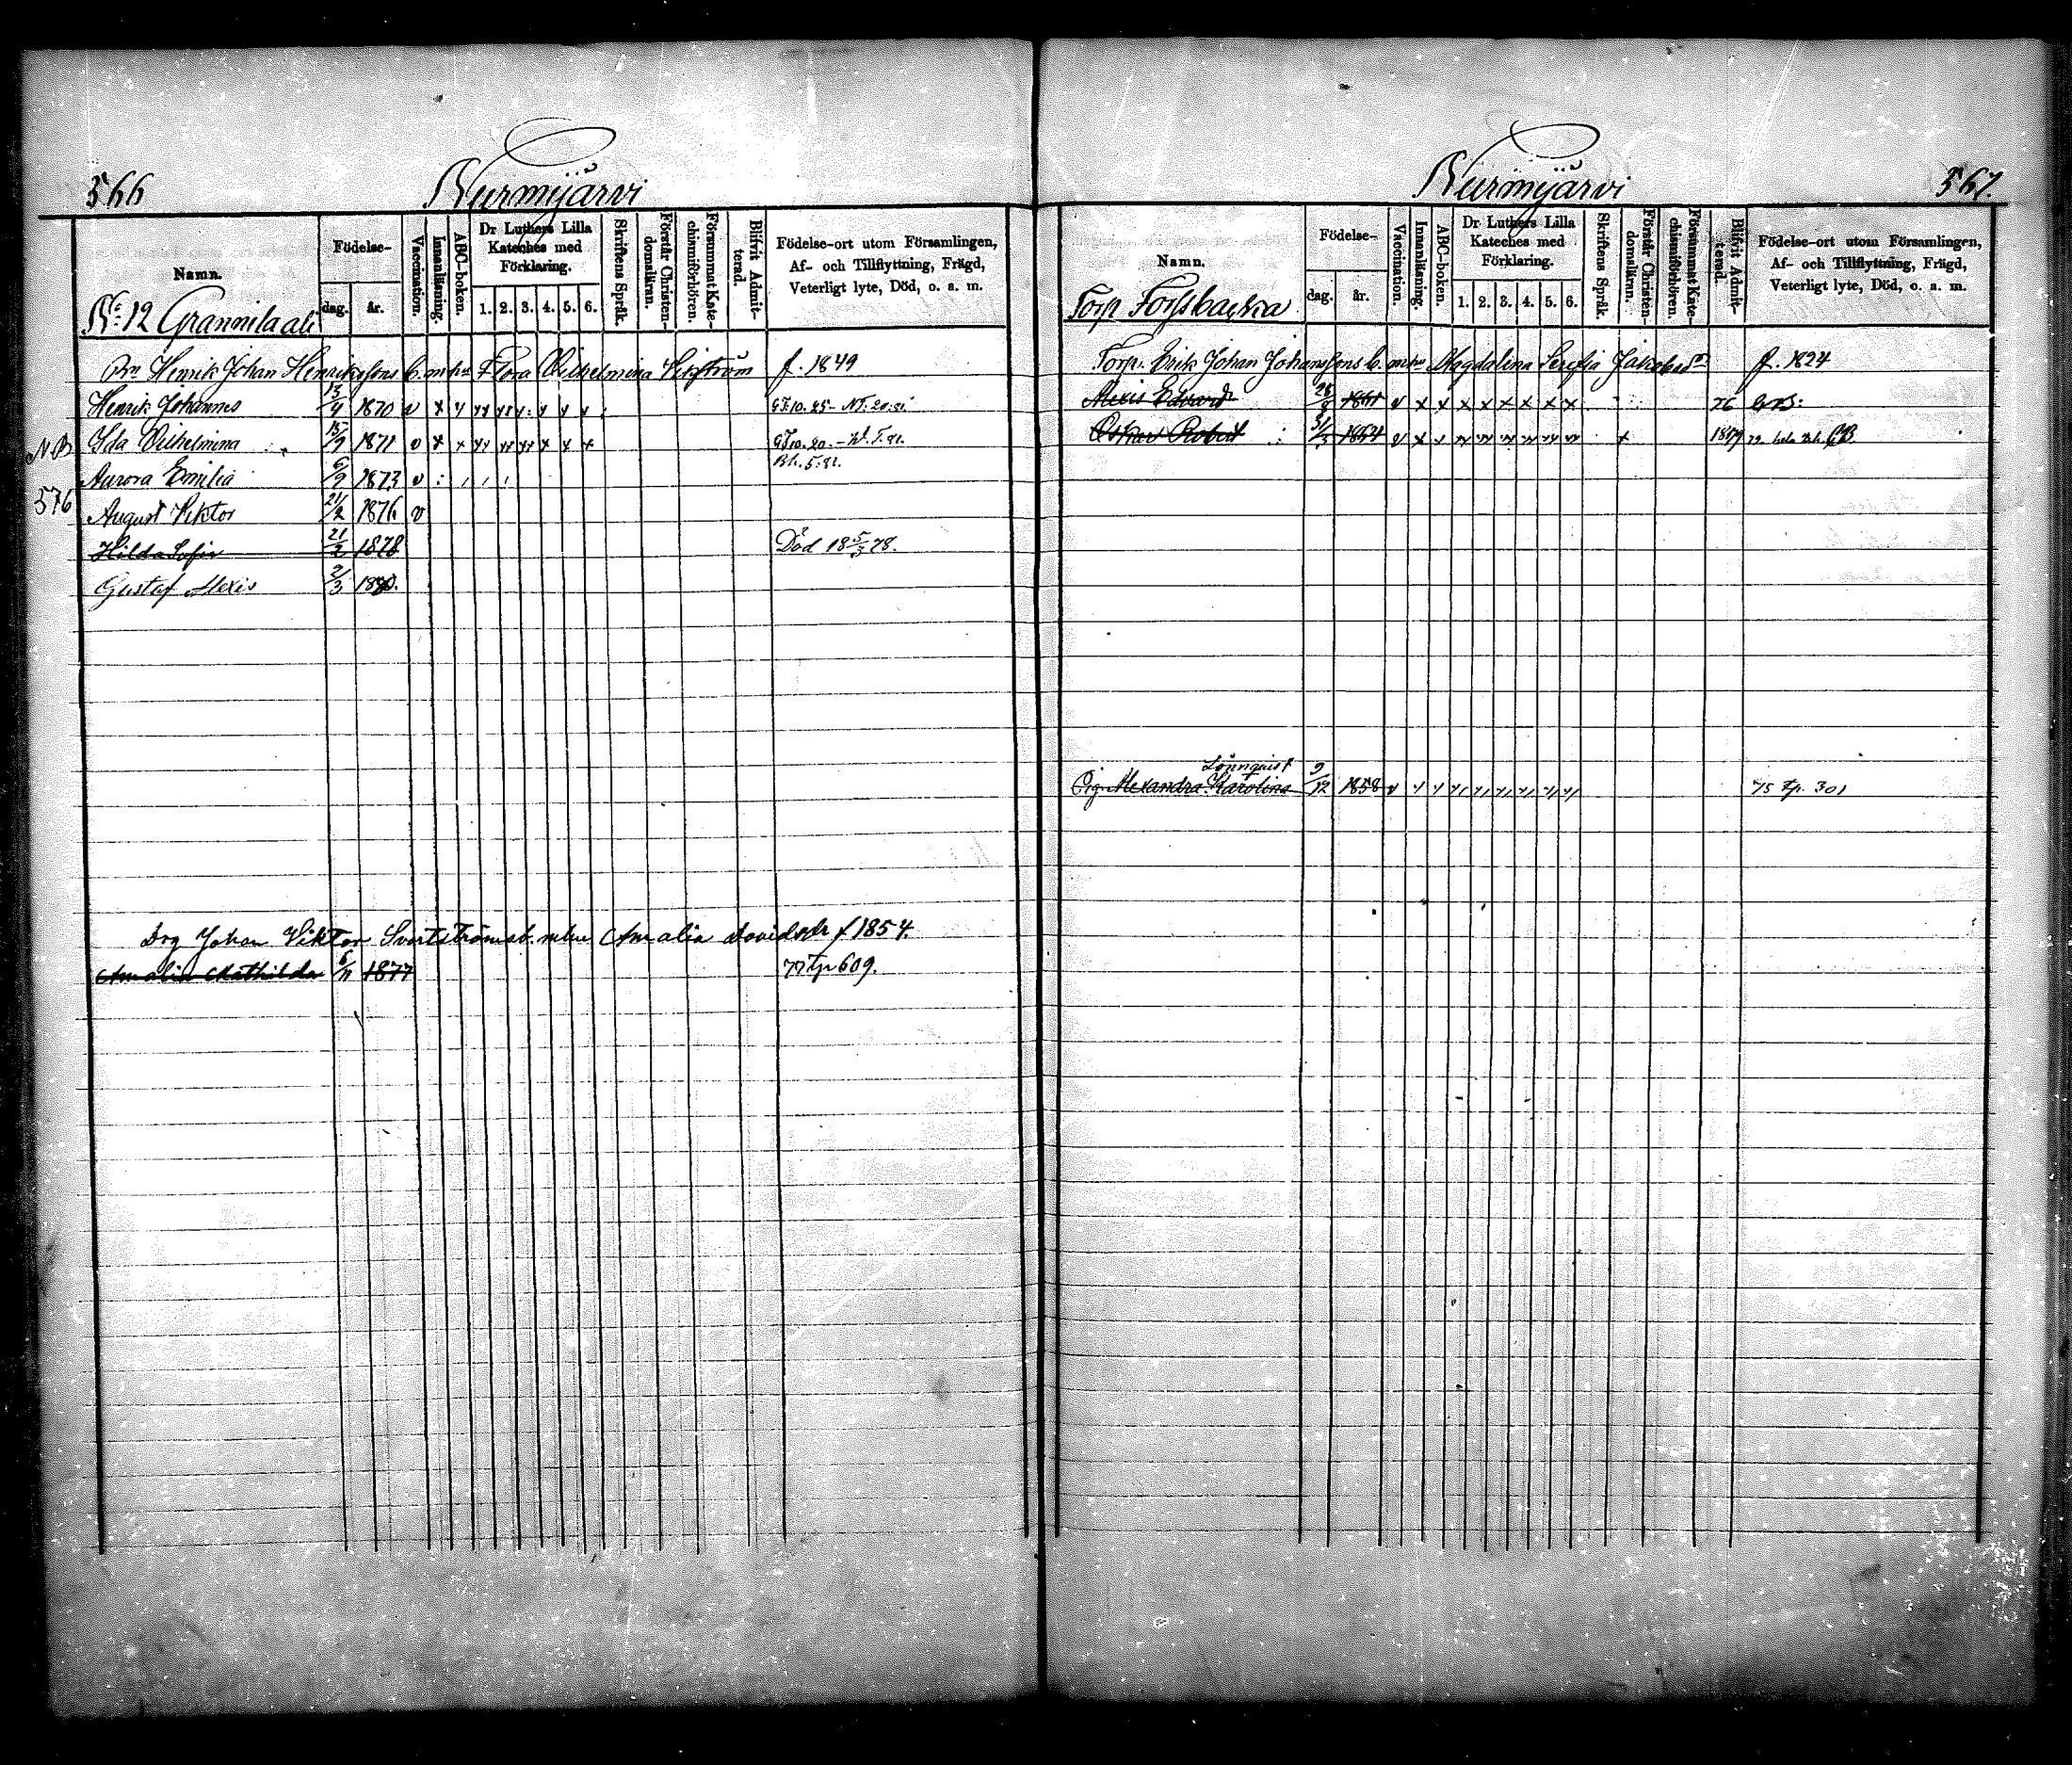 566
Nurmijärvi
Namn.
Födelse-
dag.
år.
Vaccination.
Innanläsning.
ABC-boken.
Dr Luthers Lilla Kateches med Förklaring.
1. 2. 3. 4. 5. 6.
Skriftens Språk.
Förstår Christendomsläran.
Försummat Katechismiförhören.
Blifvit Admitterad.
Födelse-ort utom Församlingen,
Af- och Tillflyttning, Frägd,
Veterligt lyte, Död, o. a. m.
No 12 Grannila ali
Bn Henrik Johan Henrikssons b. m. hu Flora Vilhelmina Vikström f. 1849
Henrik Johannes 13/4 1870 v
NB Ida Vilhelmina 15/9 1871 v
Aurora Emilia 6/9 1873 v
576 August Viktor 21/2 1876 v
Hilda Sofia 21/2 1878 Död 18 5/3 78.
Gustaf Alexis 2/3 1880.
Drg Johan Viktor Svartströms b. m. hu Amalia Davidsdr f 1854.
Amalia Mathilda 6/11 1877 77 tp 609.
567.
Nurmijärvi
Namn.
Födelse-
dag.
år.
Vaccination.
Innanläsning.
ABC-boken.
Dr Luthers Lilla Kateches med Förklaring.
1. 2. 3. 4. 5. 6.
Skriftens Språk.
Förstår Christendomsläran.
Försummat Katechismiförhören.
Blifvit Admitterad.
Födelse-ort utom Församlingen,
Af- och Tillflyttning, Frägd,
Veterligt lyte, Död, o. a. m.
Torp Forssbacka
Torp. Erik Johan Johanssons b. m. hu Magdalena Serefia Jakobsdr f. 1824
Alexis Edvard 1861 v 76
Oskar Robert 31/3 1864 v 1879
Lönnquist
Pig. Alexandra Karolina 9/12 1858 v 75 tp. 301